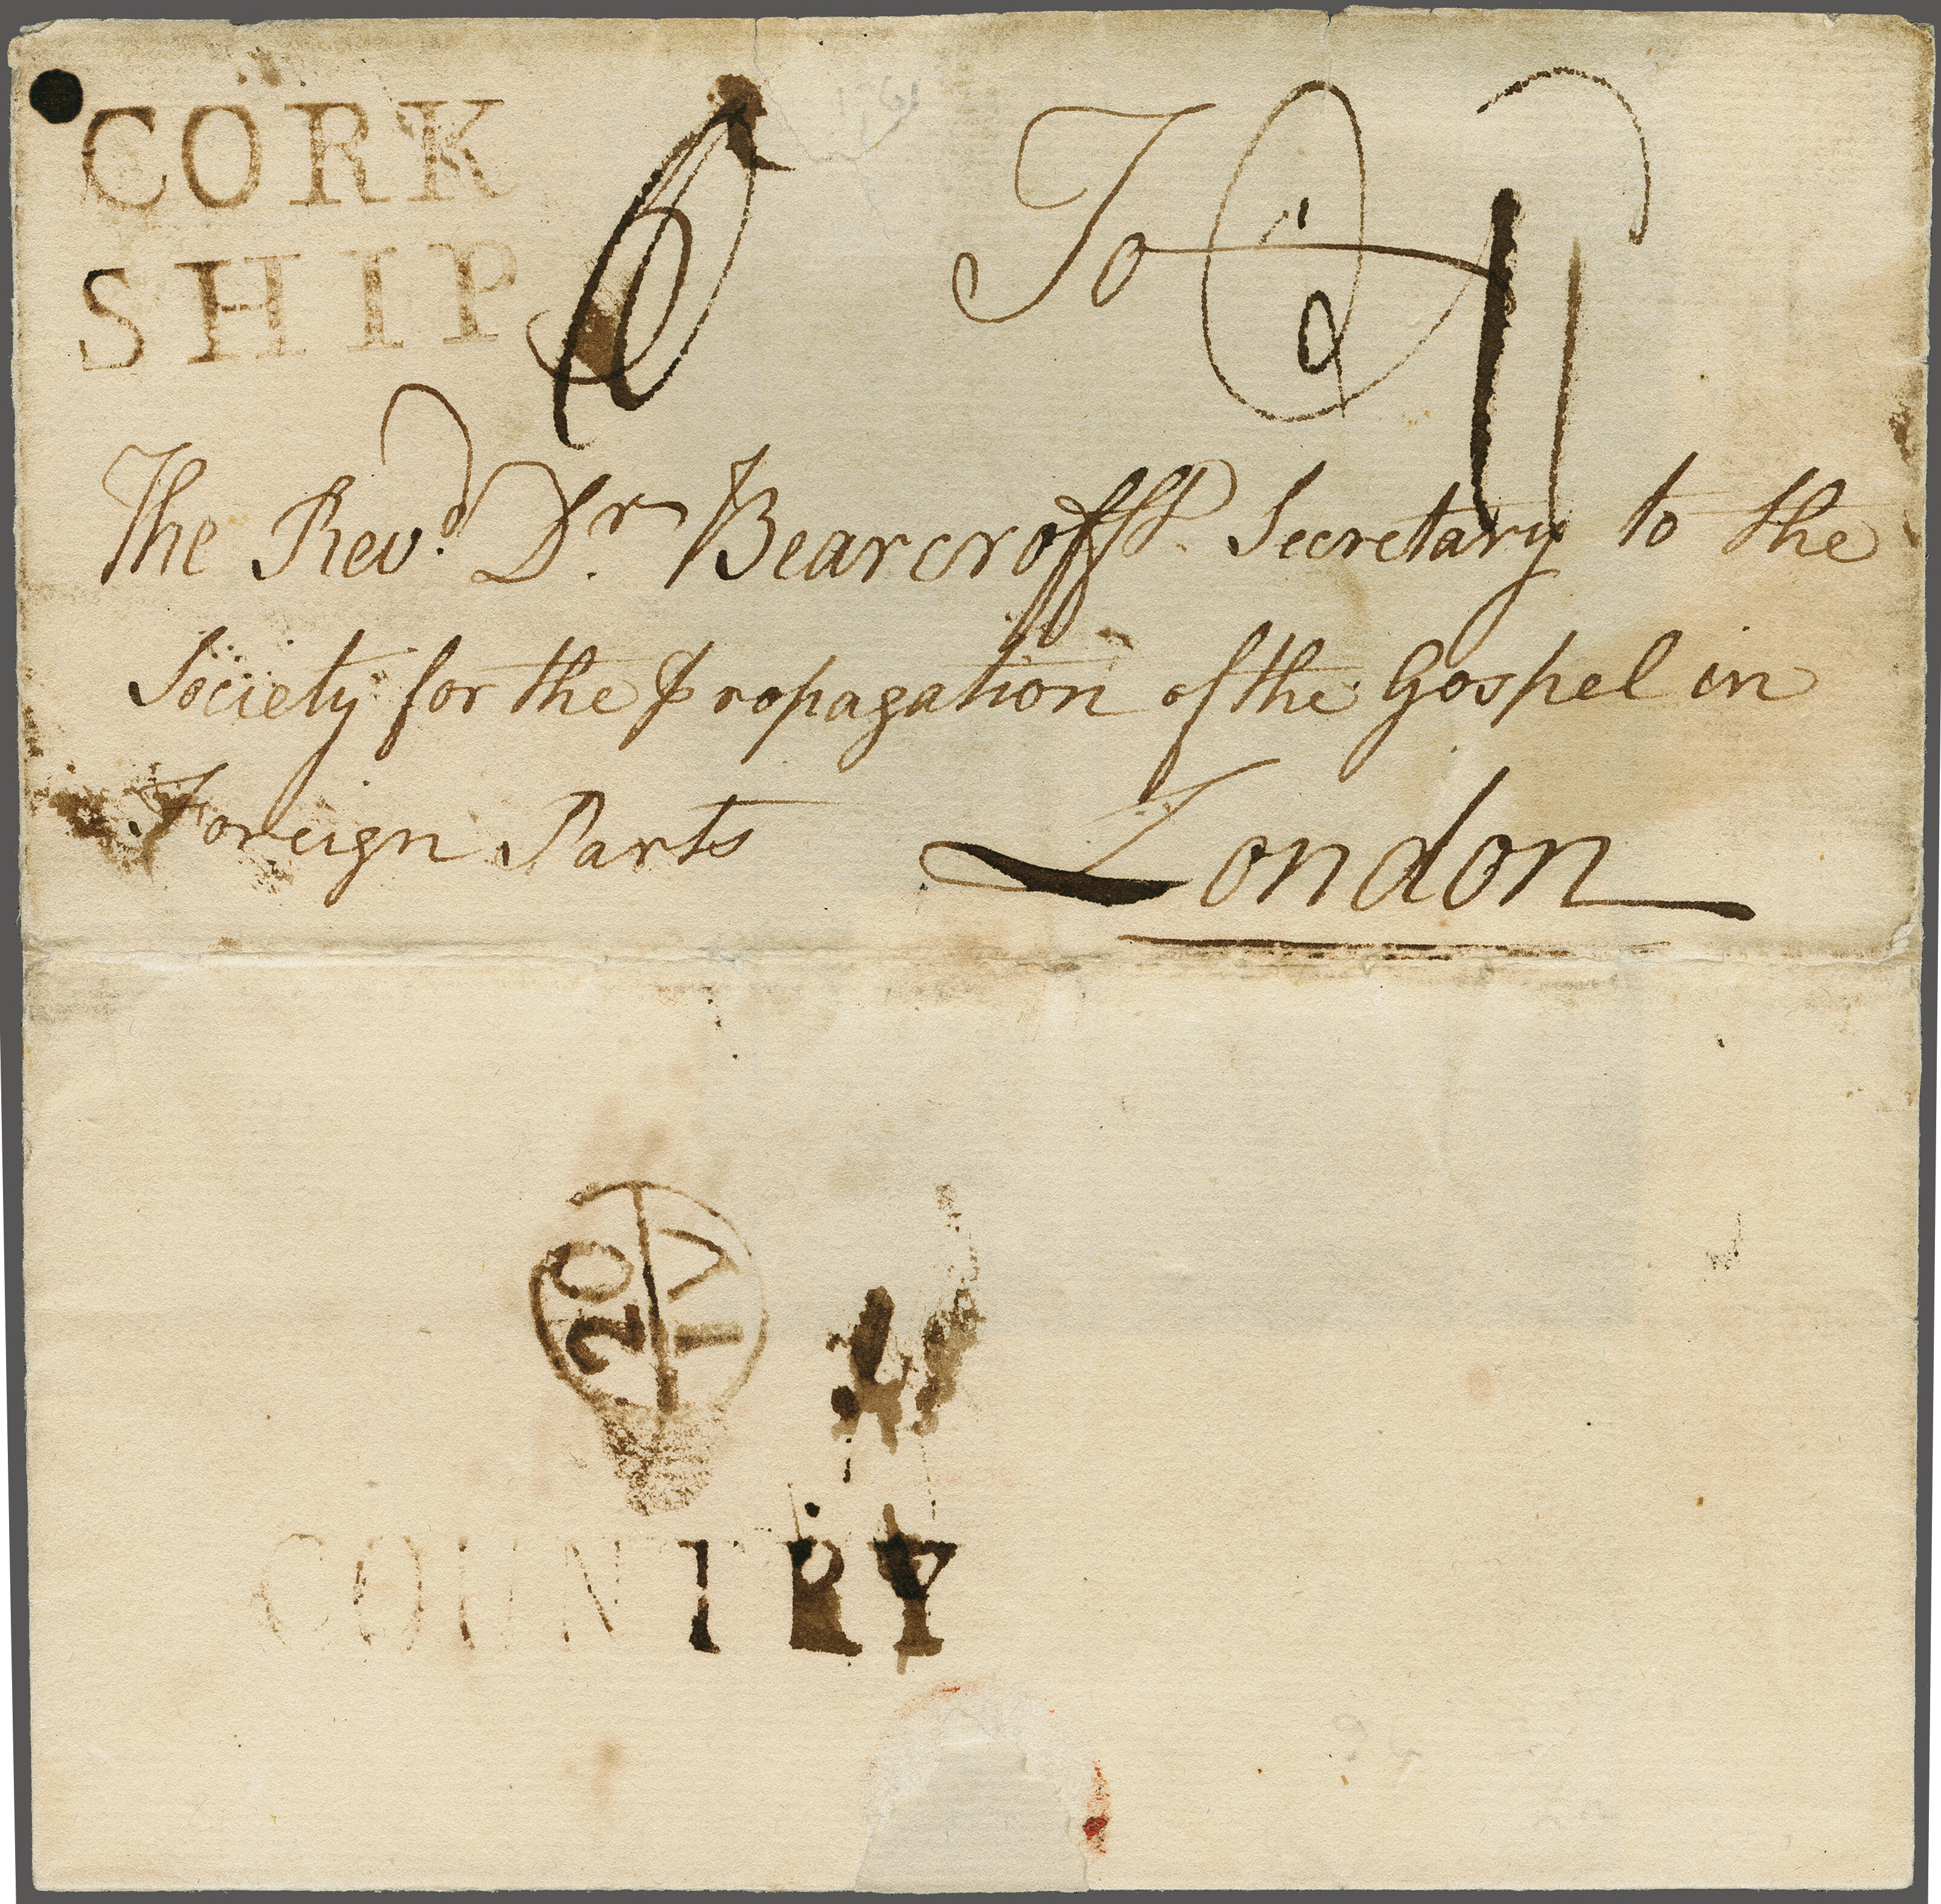 CORK
SHIP
To
The Revd. Dr. Bearcroft. Secretary to the
Society for the Propagation of the Gospel in
Foreign Parts London
20
IV
COUNTRY